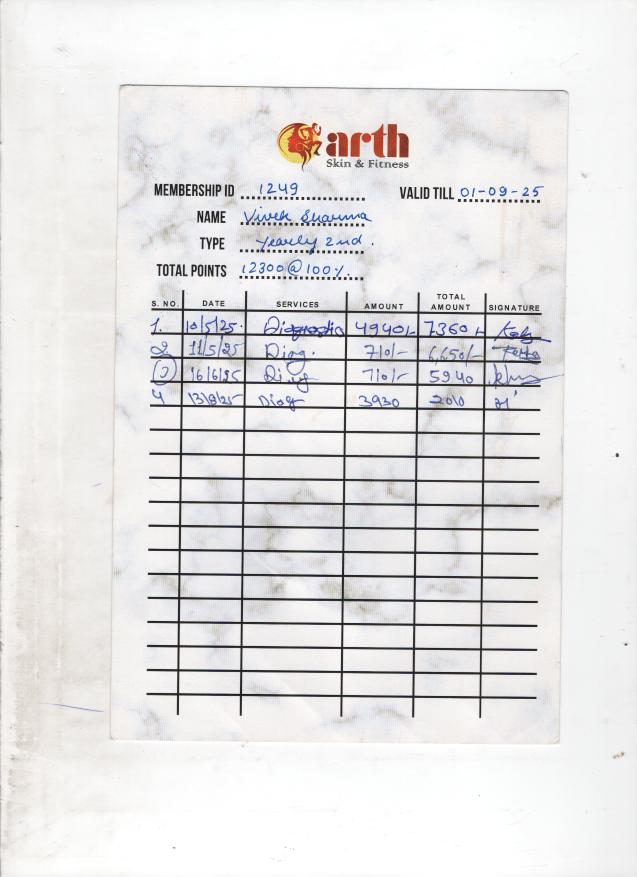 arth
Skin & Fitness
MEMBERSHIP ID 1249 VALID TILL 01-09-25
NAME Vivek Sharma
TYPE Yearly 2nd.
TOTAL POINTS 12300@100%
S. NO. DATE SERVICES AMOUNT TOTAL AMOUNT SIGNATURE
1. 10/5/25. Diagnostic 4940/- 7360/-
2 11/5/25 Diag. 710/- 6,650/-
3 16/6/25 Diag 710/- 5940
4 13/8/25 Diag 3930 2010